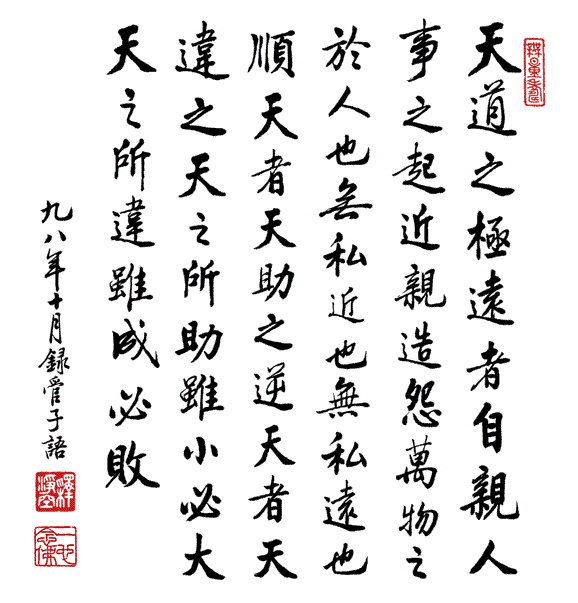 天道之極遠者自親人
事之起近親造怨萬物之
於人也無私近也無私遠也
順天者天助之逆天者天
違之天之所助雖小必大
天之所違雖成必敗
九八年十月錄管子語
釋淨空
一心念佛